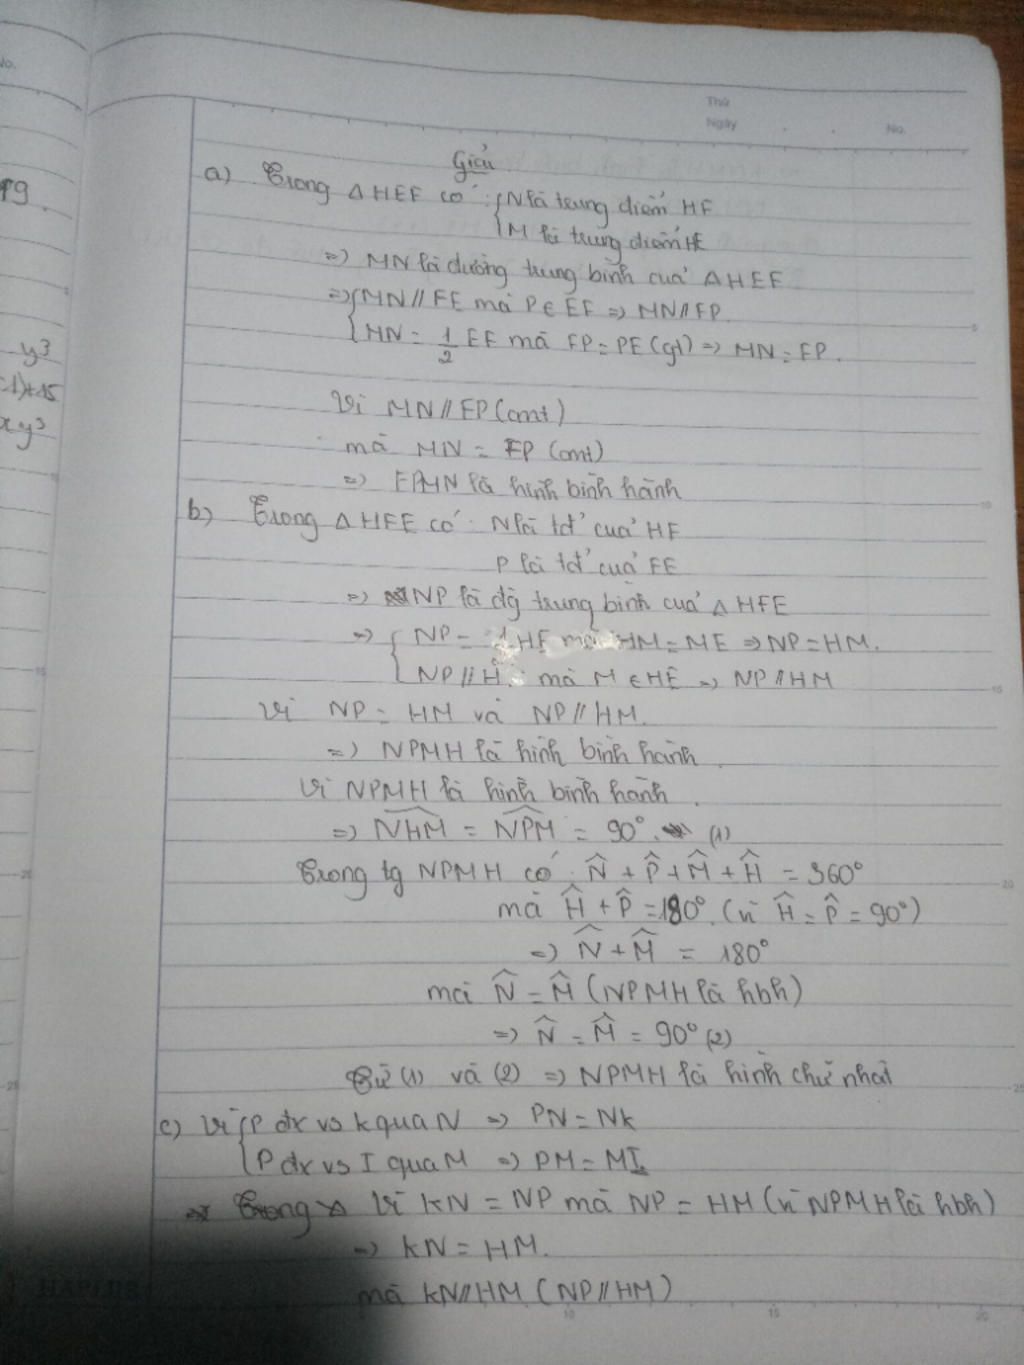 No.
Thứ
Ngày
No.
Giải
a) Trong Δ HEF có : { N là trung điểm HF
M là trung điểm HE
=> MN là đường trung bình của Δ HEF
=> { MN // FE mà P ∈ EF => MN // FP.
MN = 1/2 EF mà FP = PE (gt) => MN = FP.
y³
Vì MN // FP (cmt)
xy³
mà MN = FP (cmt)
=> FPMN là hình bình hành
b) Trong Δ HFE có : N là tđ của HF
P là tđ của FE
=> NP là đg trung bình của Δ HFE
=> { NP = 1/2 HE mà HM = ME => NP = HM.
NP // H mà M ∈ HE => NP // HM
Vì NP = HM và NP // HM.
=> NPMH là hình bình hành
Vì NPMH là hình bình hành.
=> NHM = NPM = 90°. (1)
Trong tg NPMH có : N̂ + P̂ + M̂ + Ĥ = 360°
mà Ĥ + P̂ = 180°. (vì Ĥ = P̂ = 90°)
=> N̂ + M̂ = 180°
mà N̂ = M̂ (NPMH là hbh)
=> N̂ = M̂ = 90° (2)
Từ (1) và (2) => NPMH là hình chữ nhật
c) Vì { P đx vs K qua N => PN = NK
P đx vs I qua M => PM = MI
Vì KN = NP mà NP = HM (vì NPMH là hbh)
=> KN = HM.
mà KN // HM (NP // HM)